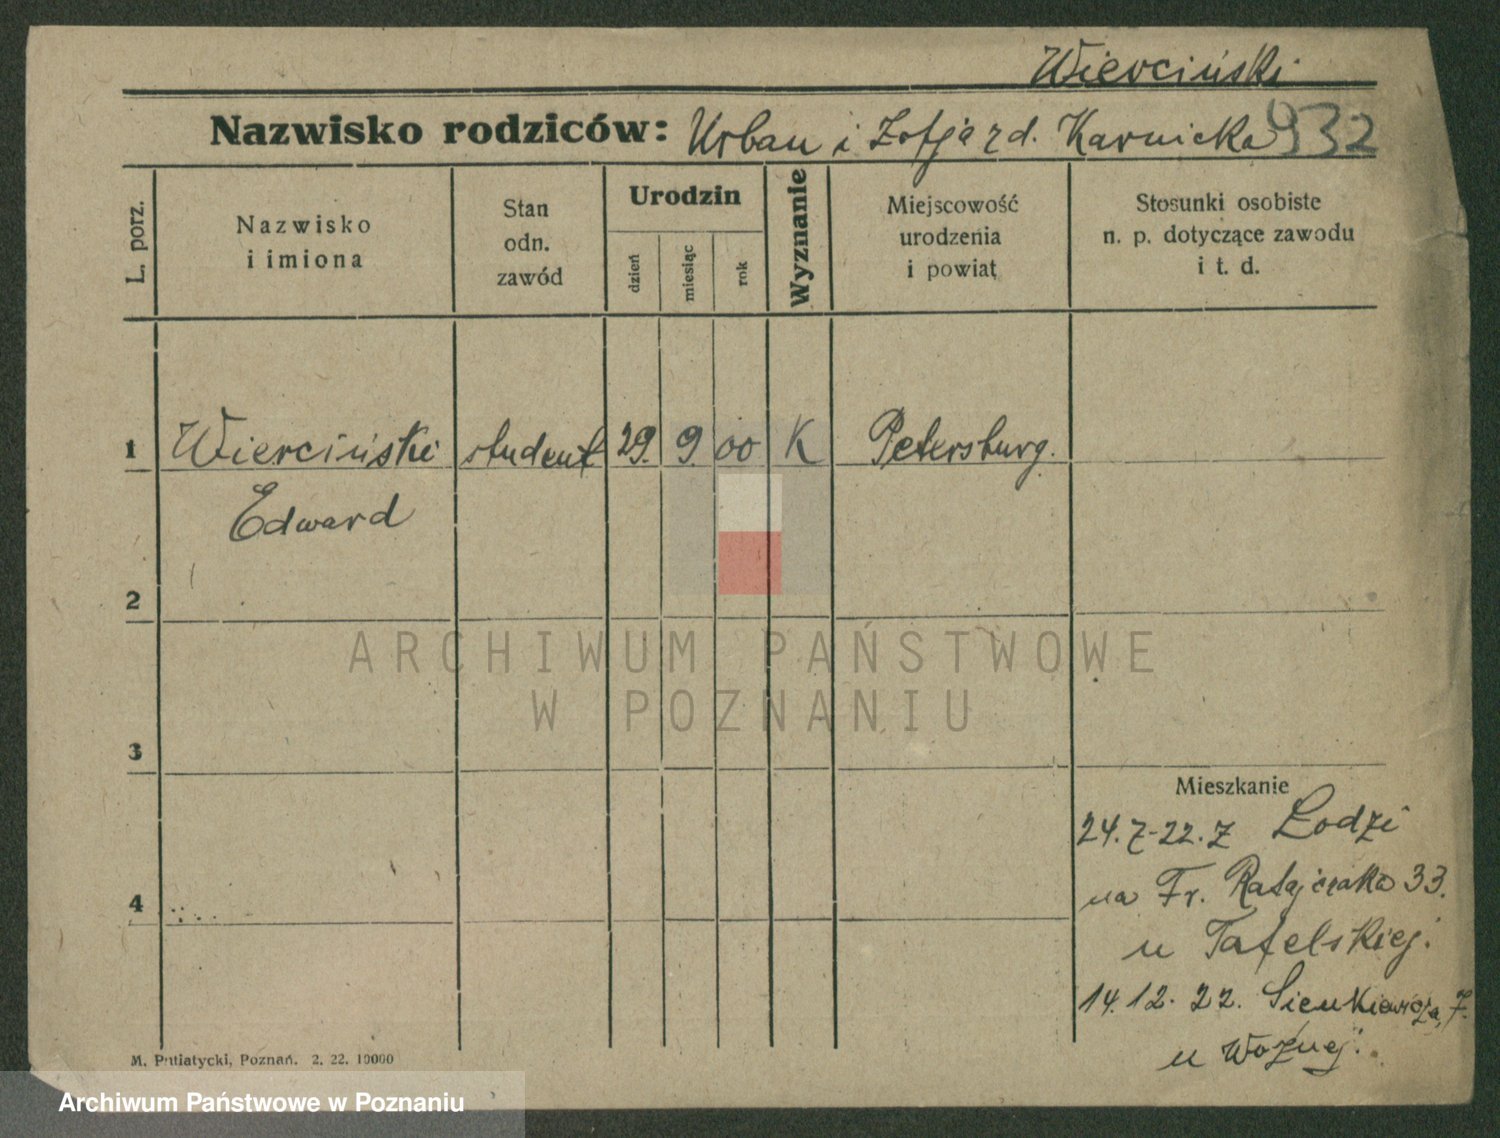 Wierciński
Nazwisko rodziców: Urban i Zofja z d. Karnicka 932
L. porz.
Nazwisko
i imiona
Stan
odn.
zawód
Urodzin
dzień
miesiąc
rok
Wyznanie
Miejscowość
urodzenia
i powiat
Stosunki osobiste
n. p. dotyczące zawodu
i t. d.
1 Wierciński student 29. 9. 00 K Petersburg.
Edward
2
3
4
Mieszkanie
24.7-22. z Łodzi
na Fr. Ratajczaka 33.
u Tafelskiej.
14.12. 22. Sienkiewicza, 7.
u Woźnej.
M. Putiatycki, Poznań. 2. 22. 10000
ARCHIWUM PAŃSTWOWE
W POZNANIU
Archiwum Państwowe w Poznaniu